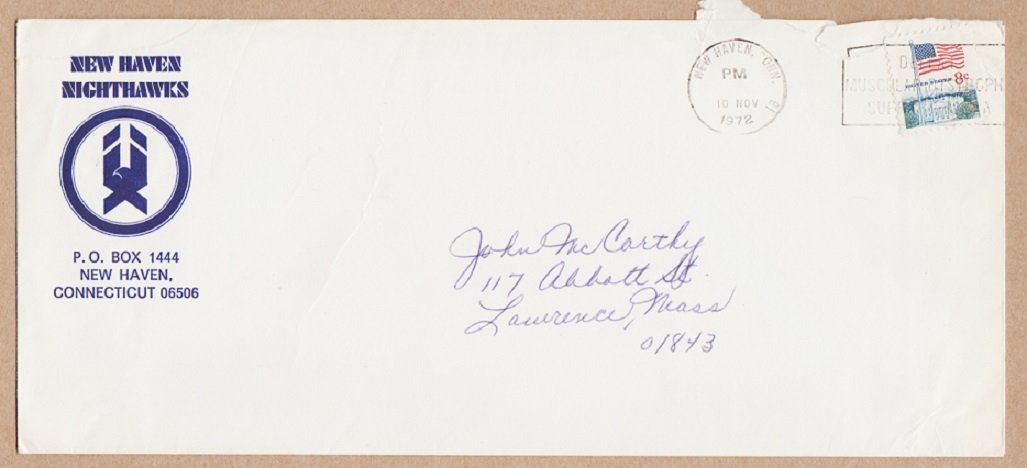 NEW HAVEN
NIGHTHAWKS
P.O. BOX 1444
NEW HAVEN,
CONNECTICUT 06506
NEW HAVEN, CONN.
PM
10 NOV
1972
MUSCULAR DYSTROPH
8c
UNITED STATES
John McCarthy
117 Abbott St.
Lawrence, Mass
01843